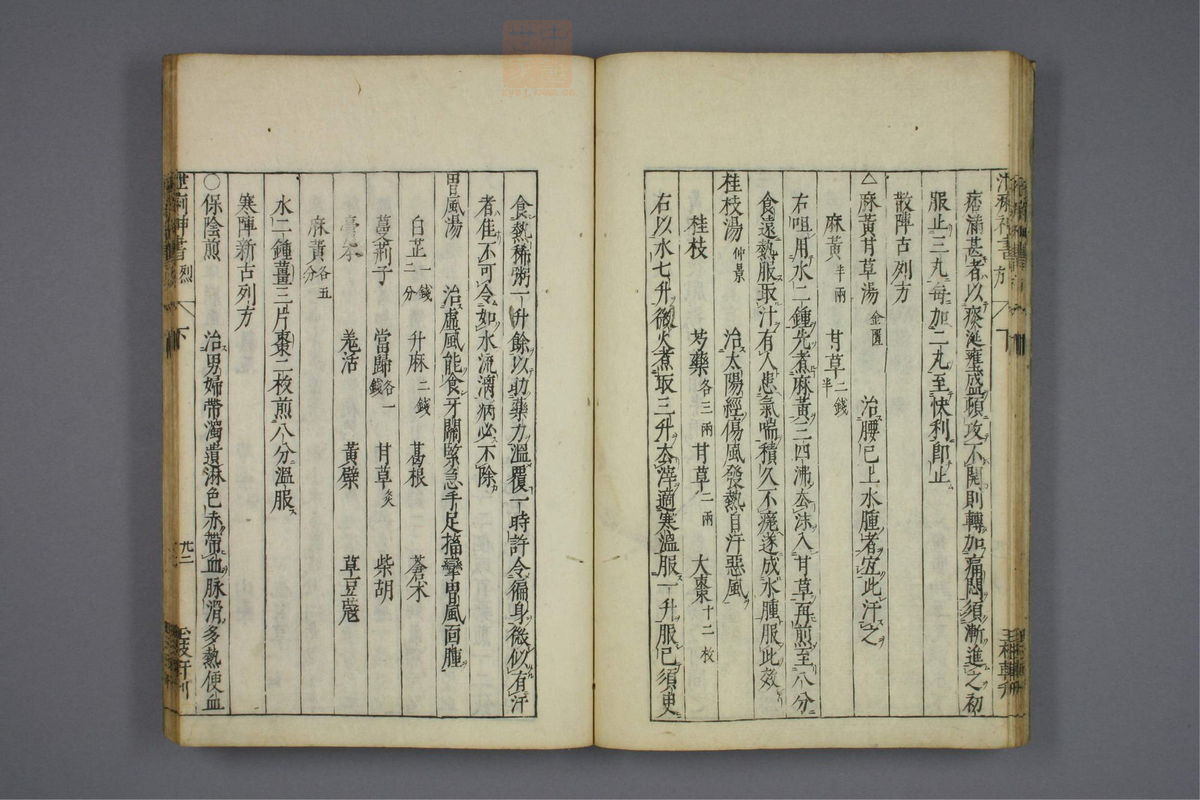 痞滿甚者以痰涎壅盛頓攻不開則轉加痛悶須漸進之初
服止三丸每加二丸至快利即止
散陣古列方
△麻黃甘草湯 金匱 治腰已上水腫者宜此汗之
麻黃半兩 甘草二錢半
右咀用水二鍾先煮麻黃三四沸去沫入甘草再煎至八分
食遠熱服取汁有人患氣喘積久不瘥遂成水腫服此效
桂枝湯 仲景 治太陽經傷風發熱自汗惡風
桂枝 芍藥各三兩 甘草二兩 大棗十二枚
右以水七升微火煮取三升去滓適寒溫服一升服已須臾
食熱稀粥一升餘以助藥力溫覆一時許令徧身微似有汗
者佳不可令如水流漓病必不除
胃風湯 治虛風能食牙關緊急手足搐攣胃風面腫
白芷一錢二分 升麻二錢 葛根 蒼朮
蔓荊子 當歸各一錢 甘草炙 柴胡
藁本 羌活 黃蘗 草豆蔻
麻黃各五分
水二鍾薑三片棗二枚煎八分溫服
寒陣新古列方
○保陰煎 治男婦帶濁遺淋色赤帶血脉滑多熱便血